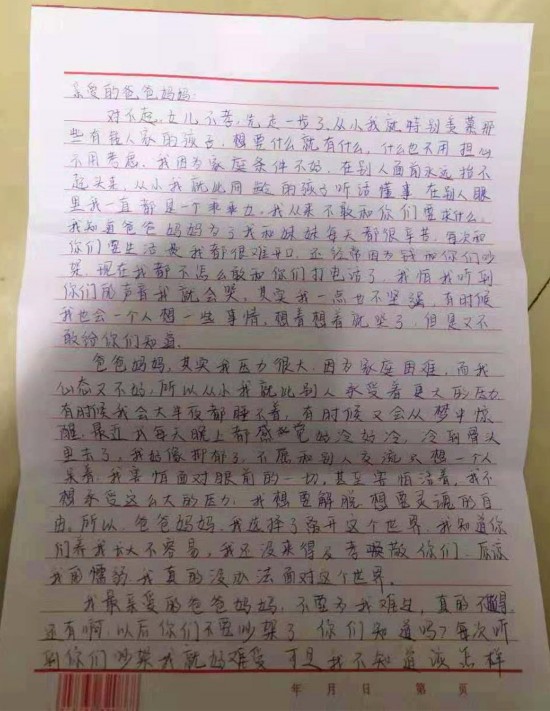 亲爱的爸爸妈妈:
对不起,女儿不孝,先走一步了,从小我就特别羡慕那
些有钱人家的孩子,想要什么就有什么,什么也不用担心
不用考虑,我因为家庭条件不好,在别人面前永远抬不
起头来,从小我就比同龄的孩子听话懂事,在别人眼
里我一直都是一个乖乖女,我从来不敢和你们要求什么,
我知道爸爸妈妈为了我和妹妹每天都很辛苦,每次和
你们要生活费我都很难开口,还经常因为钱和你们吵
架,现在我都不怎么敢和你们打电话了,我怕我听到
你们的声音我就会哭,其实我一点也不坚强,有时候
我也会一个人想一些事情,想着想着就哭了,但是又不
敢给你们知道。
爸爸妈妈,其实我压力很大,因为家庭困难,而我
心态又不好,所以从小我就比别人承受着更大的压力
有时候我会大半夜都睡不着,有时候又会从梦中惊
醒,最近我每天晚上都感觉好冷好冷,冷到骨头
里去了,我好像抑郁了,不愿和别人交流,只想一个人
呆着,我害怕面对眼前的一切,甚至害怕活着,我不
想承受这么大的压力,我想要解脱,想要灵魂的自
由,所以,爸爸妈妈,我选择了离开这个世界,我知道你
们养我长大不容易,我还没来得及孝敬你们,原谅
我的懦弱,我真的没办法面对这个世界。
我最亲爱的爸爸妈妈,不要为我难过,真的不值得,
还有啊,以后你们不要吵架了,你们知道吗?每次听
到你们吵架我就好难受,可是我不知道该怎样
年 月 日 第 页